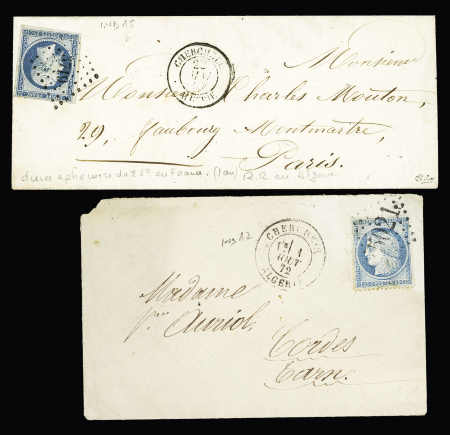 IND 15
CHERCHELL
Monsieur
Monsieur Charles Mouton,
29, Faubourg Montmartre,
Paris.
durée éphémère du 25c en France. (1 an)
IND 12
CHERCHELL
1
AOUT
72
ALGERIE
Madame
Auriol
Cordes
Tarn.